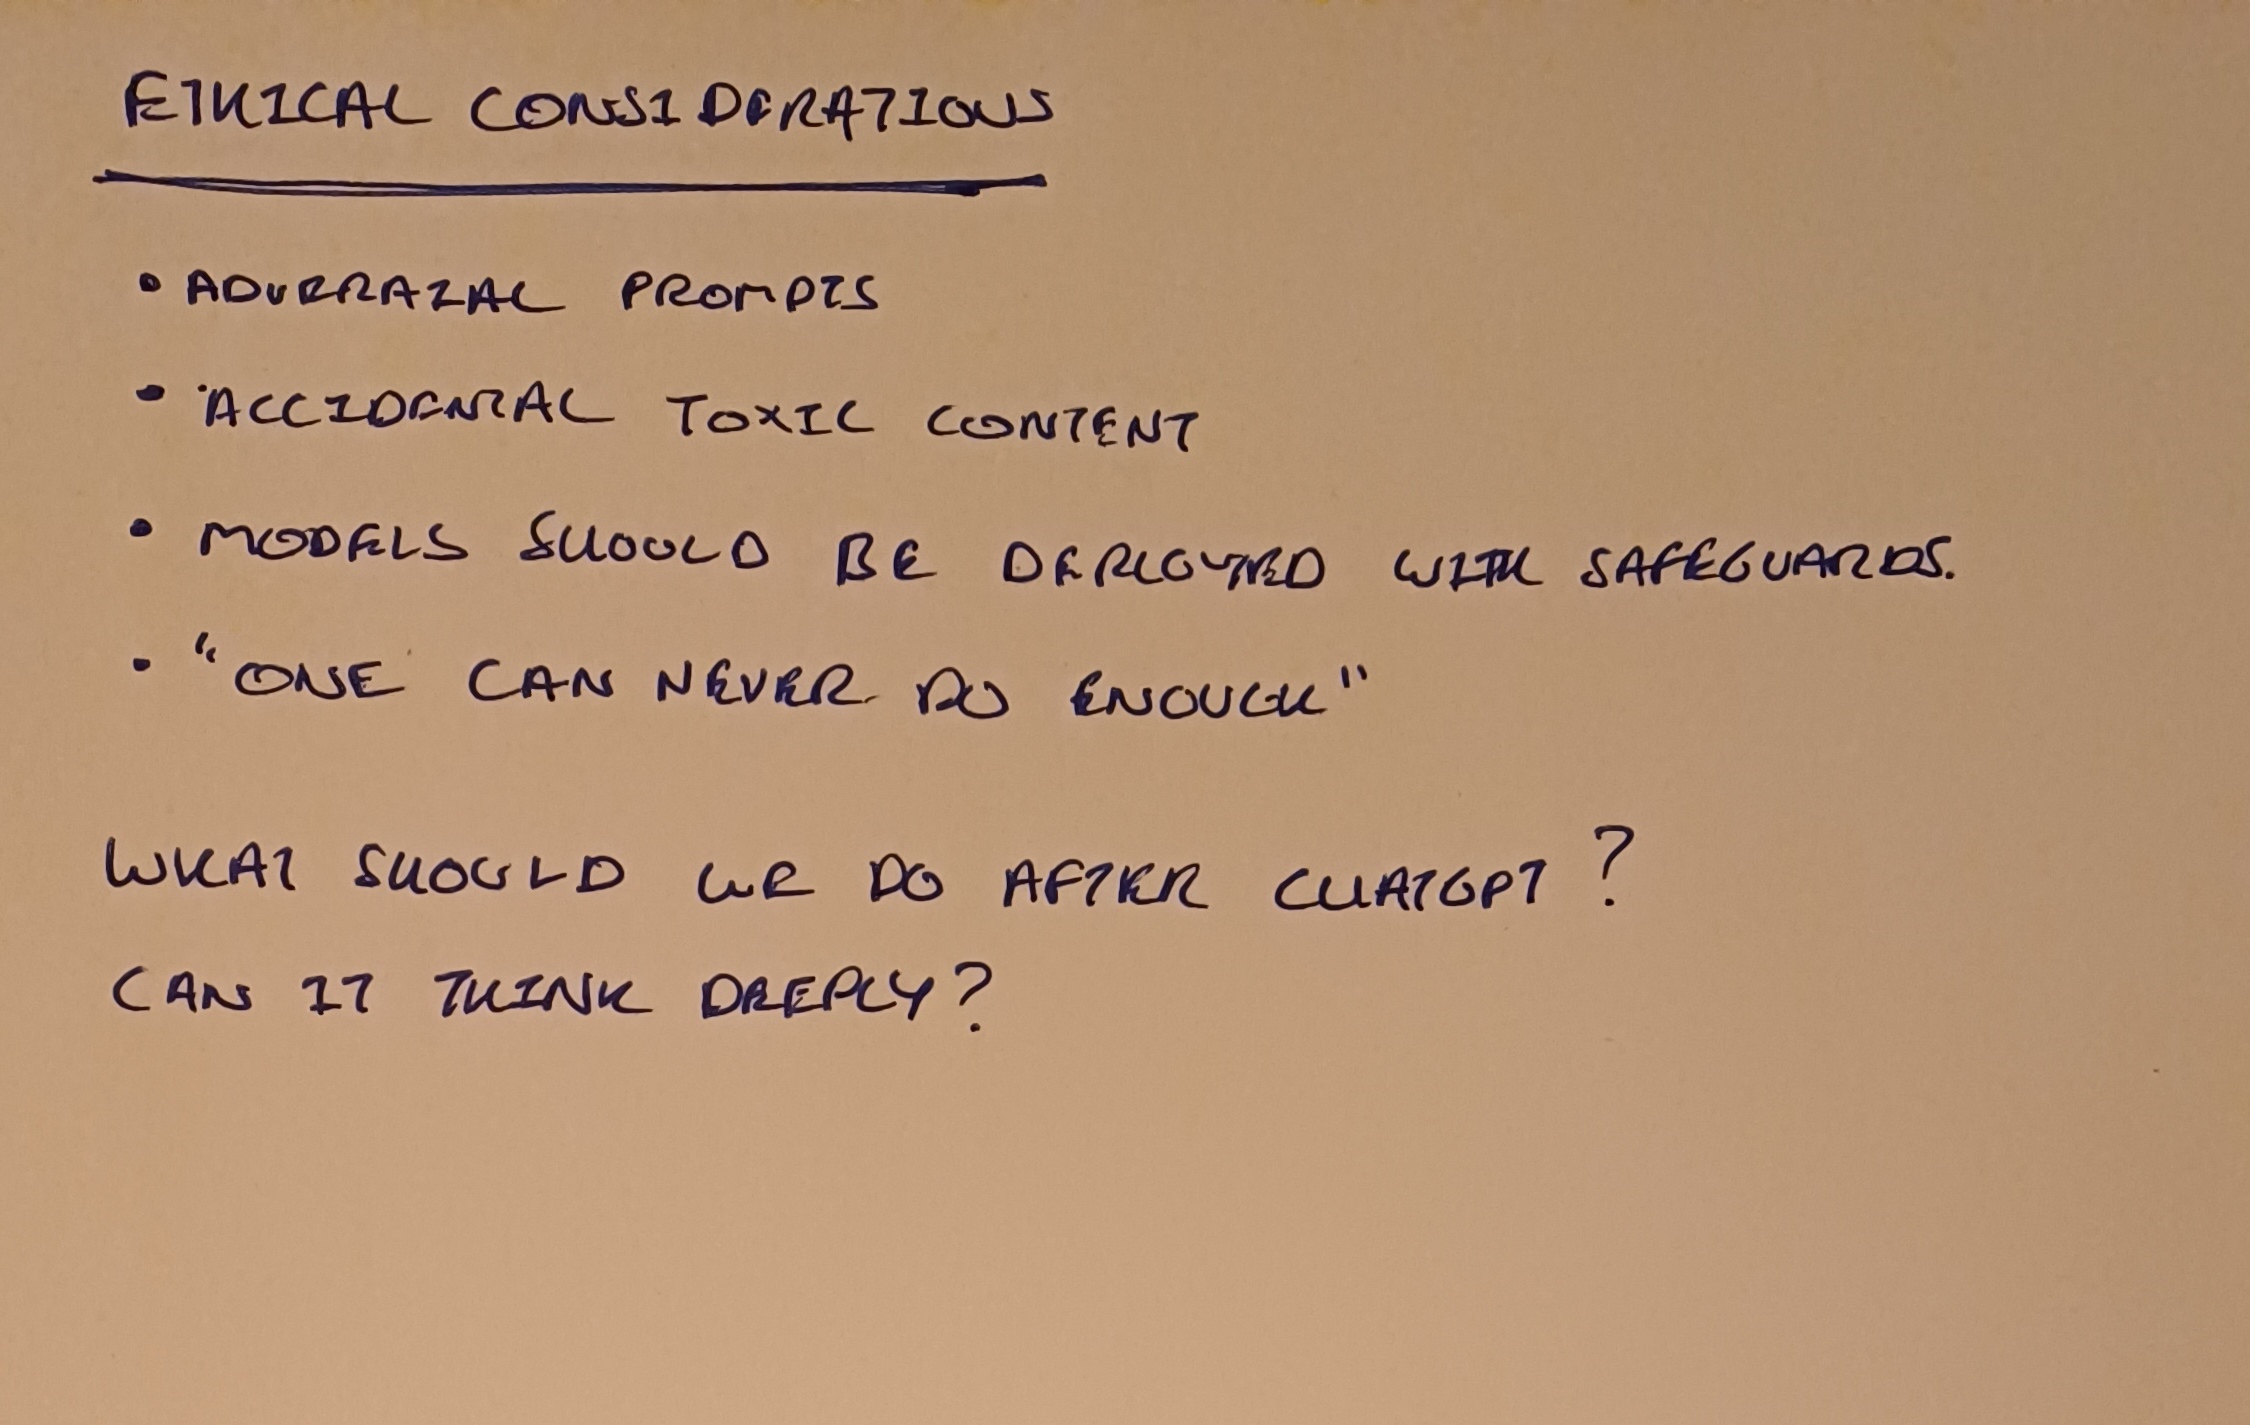 ETHICAL CONSIDERATIONS
• ADVERRAIAL PROMPTS
• ACCIDENTAL TOXIC CONTENT
• MODELS SHOULD BE DEPLOYED WITH SAFEGUARDS.
• "ONE CAN NEVER DO ENOUGH"
WHAT SHOULD WE DO AFTER CHATGPT?
CAN IT THINK DEEPLY?